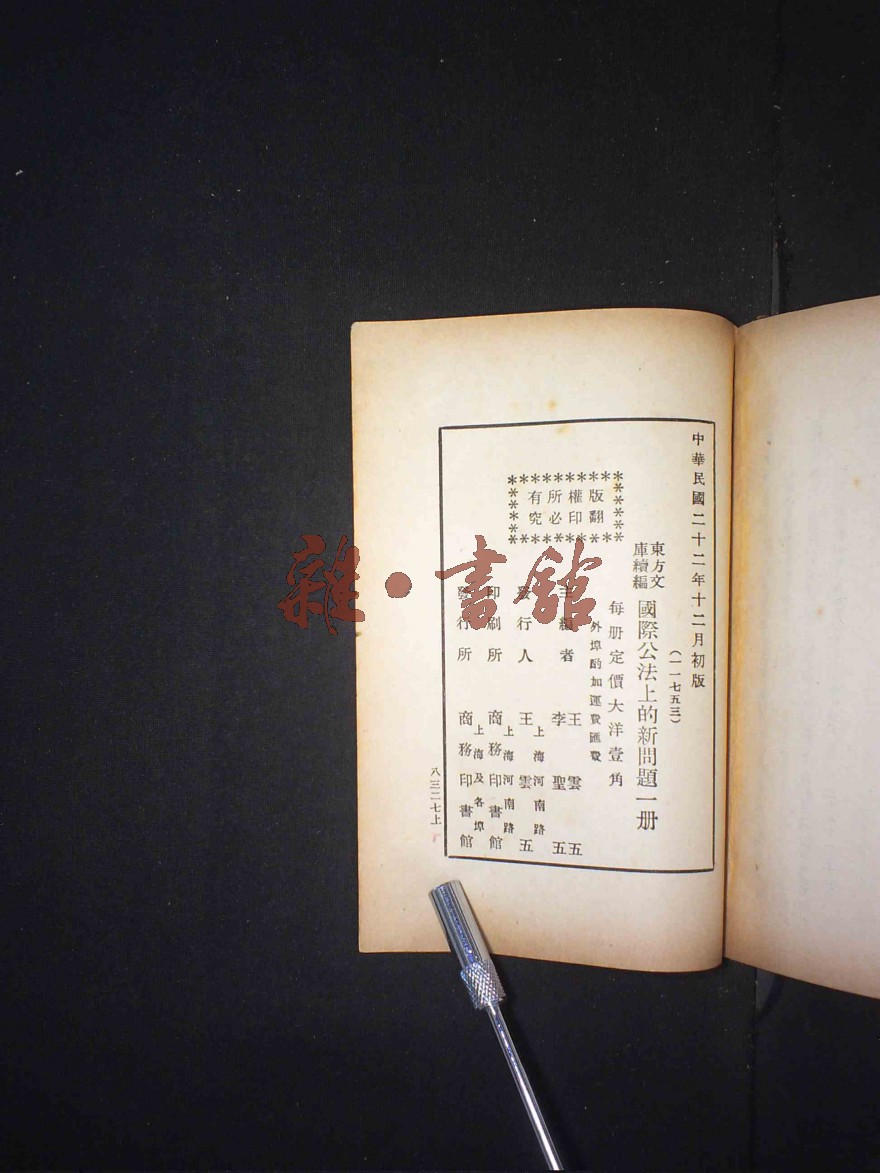 中華民國二十二年十二月初版
(一一七五三)
東方文庫續編 國際公法上的新問題一册
每册定價大洋壹角
外埠酌加運費匯費
版權所有
翻印必究
主編者 王雲五
李聖五
發行人 王雲五
上海河南路
印刷所 商務印書館
上海河南路
發行所 商務印書館
上海及各埠
八三二七上
雜·書館